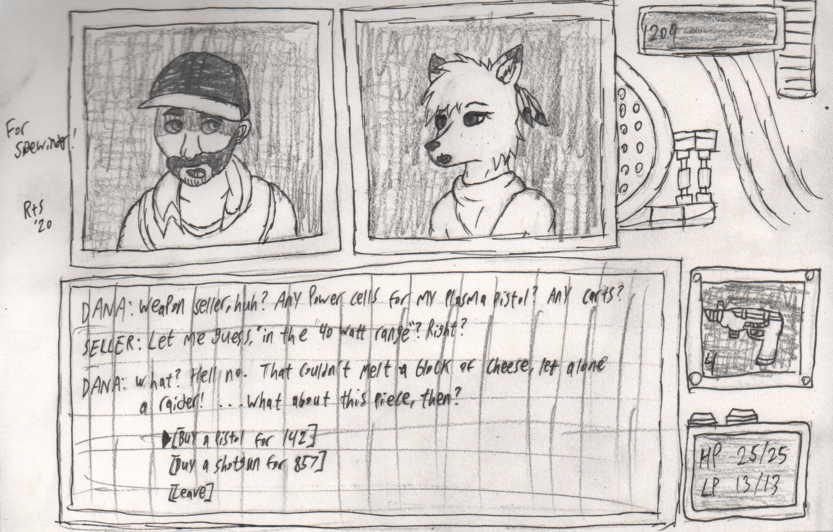 1209
For
Sbewinder!
R+S
'20
DANA: Weapon seller, huh? Any power cells for my plasma pistol? Any carts?
SELLER: Let me guess, "in the '40 watt range"? Right?
DANA: What? Hell no. That couldn't melt a block of cheese, let alone
a raider! ...What about this piece, then?
[Buy a pistol for 142]
[Buy a shotgun for 857]
[Leave]
4
HP 25/25
LP 13/13